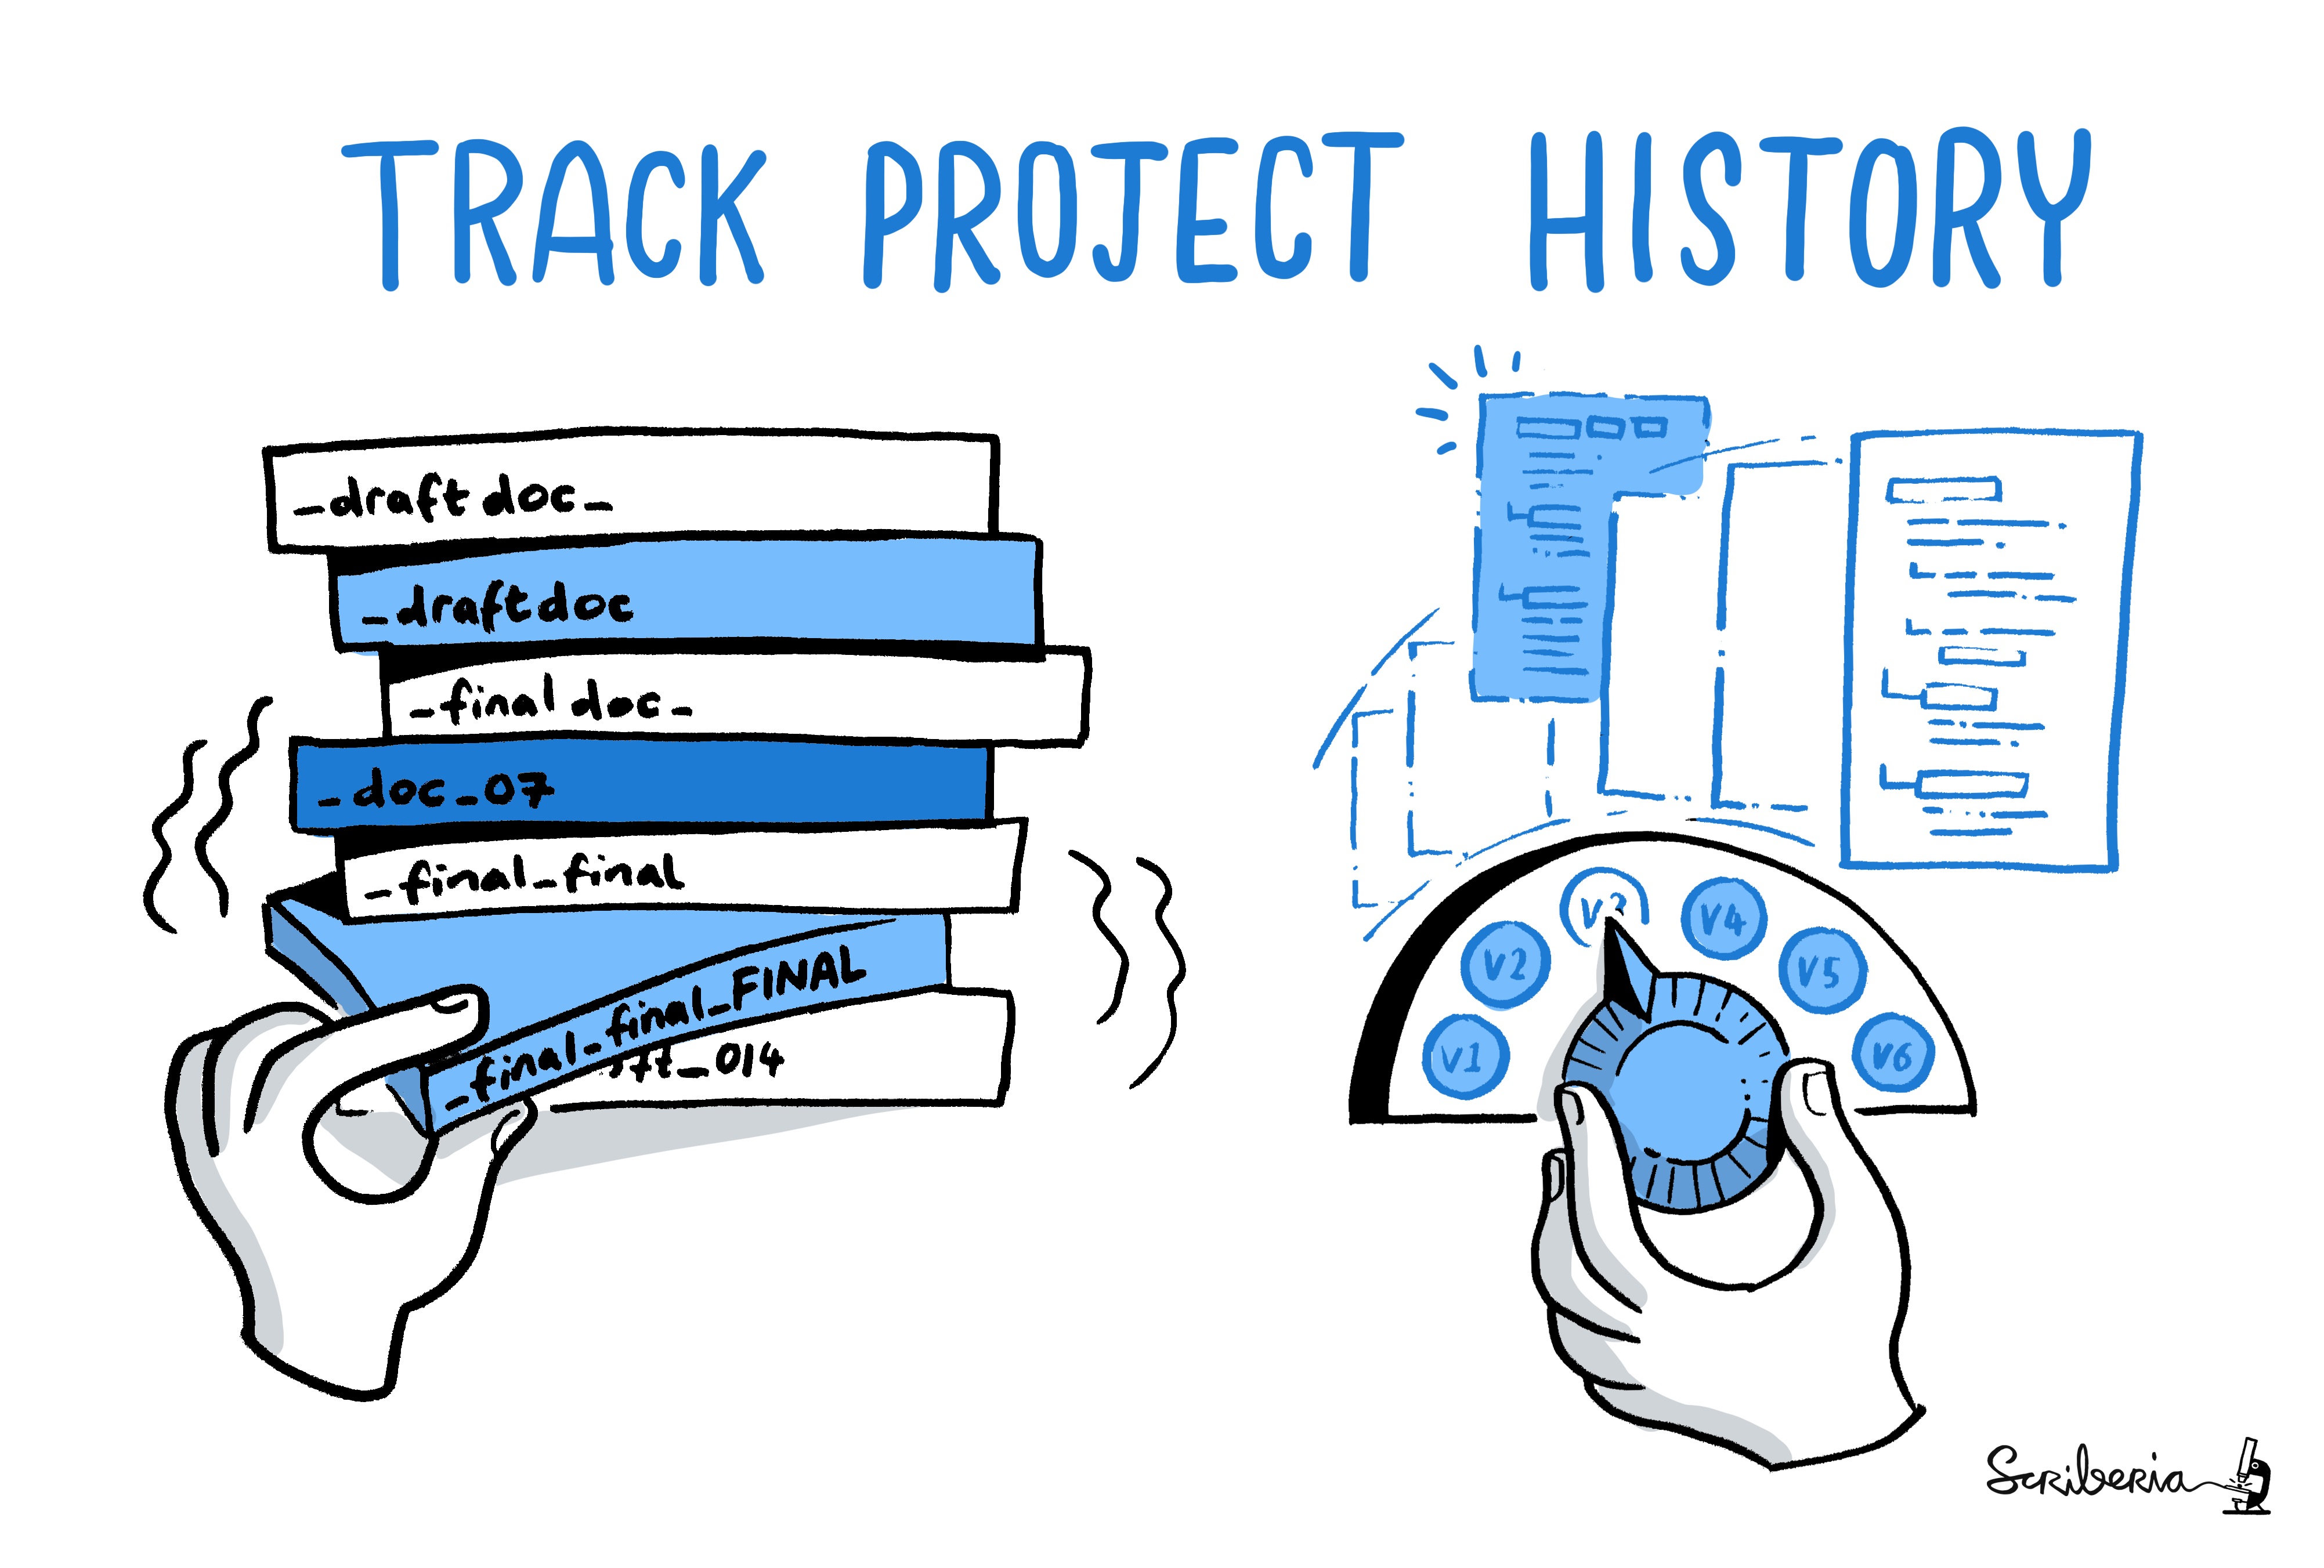 TRACK PROJECT HISTORY
_draft doc_
_draft doc
_final doc_
_doc_07
_final_final
_final_final_FINAL
ft_014
V1
V2
V3
V4
V5
V6
Scriberia